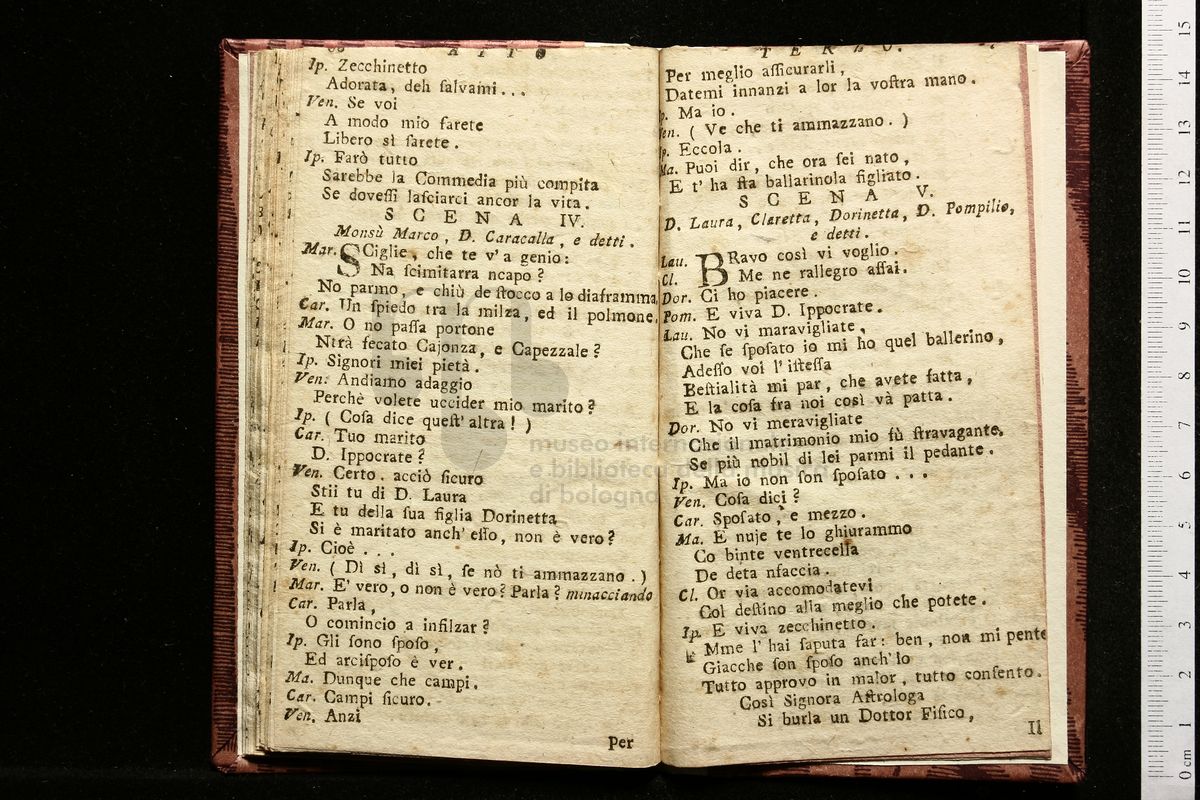 ATTO
Ip. Zecchinetto
Adorata, deh ſalvami...
Ven. Se voi
A modo mio farete
Libero sì ſarete.
Ip. Farò tutto
Sarebbe la Commedia più compita
Se doveſſi laſciarci ancor la vita.
SCENA IV.
Monsù Marco, D. Caracalla, e detti.
Mar. SCiglie, che te v'a genio:
Na ſcimitarra ncapo?
No parmo, e chiù de ſtocco a lo diaframma
Car. Un ſpiedo tra la milza, ed il polmone.
Mar. O no paſſa portone
Ntrà fecato Cajonza, e Capezzale?
Ip. Signori miei pietà.
Ven. Andiamo adaggio
Perchè volete uccider mio marito?
Ip. (Coſa dice queſt'altra!)
Car. Tuo marito
D. Ippocrate?
Ven. Certo. acciò ſicuro
Stii tu di D. Laura
E tu della ſua figlia Dorinetta
Si è maritato anch'eſſo, non è vero?
Ip. Cioè...
Ven. (Dì sì, dì sì, ſe nò ti ammazzano.)
Mar. E' vero, o non è vero? Parla? minacciando
Car. Parla,
O comincio a infilzar?
Ip. Gli ſono ſpoſo,
Ed arciſpoſo è ver.
Ma. Dunque che campi.
Car. Campi ſicuro.
Ven. Anzi
Per
TERZO.
Per meglio aſſicurarli,
Datemi innanzi a lor la voſtra mano.
p. Ma io.
en. (Ve che ti ammazzano.)
p. Eccola.
Ma. Puoi dir, che ora ſei nato,
E t'ha ſta ballarinola figliato.
SCENA V.
D. Laura, Claretta, Dorinetta, D. Pompilio,
e detti.
Lau. BRavo così vi voglio.
Cl. Me ne rallegro aſſai.
Dor. Ci ho piacere.
Pom. E viva D. Ippocrate.
Lau. No vi maravigliate,
Che ſe ſpoſato io mi ho quel ballerino,
Adeſſo voi l'iſteſſa
Beſtialità mi par, che avete fatta,
E la coſa fra noi così và patta.
Dor. No vi meravigliate
Che il matrimonio mio fù ſtravagante,
Se più nobil di lei parmi il pedante.
Ip. Ma io non ſon ſpoſato...
Ven. Coſa dici?
Car. Spoſato, e mezzo.
Ma. E nuje te lo ghiurammo
Co binte ventrecella
De deta nfaccia.
Cl. Or via accomodatevi
Col deſtino alla meglio che potete.
Ip. E viva zecchinetto.
Mme l'hai ſaputa far: ben, non mi pente
Giacche ſon ſpoſo anch'io
Tutto approvo in malor, tutto conſento.
Così Signora Aſtrologa
Si burla un Dottor Fiſico,
Il
museo internazionale
e biblioteca della musica
di bologna
0 cm 1 2 3 4 5 6 7 8 9 10 11 12 13 14 15